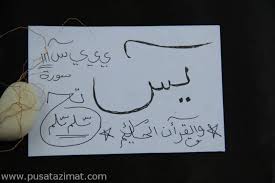 ي ي ي س
سورة
يس
سلم سلم
والقرآن الحكيم
www.pusatazimat.com